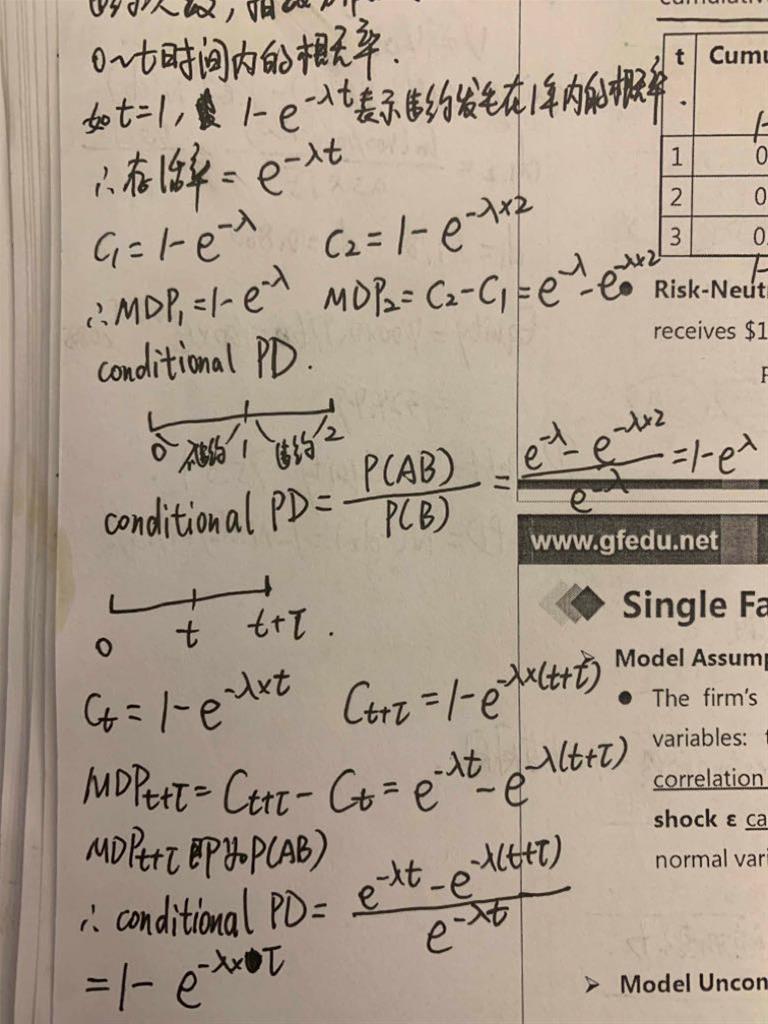 0~t时间内的概率.
如t=1, 1-e^{-λt}表示违约发生在1年内的概率.
∴存活率=e^{-λt}
C₁=1-e^{-λ} C₂=1-e^{-λ×2}
∴MDP₁=1-e^{-λ} MDP₂=C₂-C₁=e^{-λ}-e^{-λ×2}
conditional PD.
0 不违约 1 违约 2
conditional PD=\frac{P(AB)}{P(B)}=\frac{e^{-λ}-e^{-λ×2}}{e^{-λ}}=1-e^{λ}
0 t t+τ.
Ct=1-e^{-λ×t} Ct+τ=1-e^{-λ×(t+τ)}
MDPt+τ=Ct+τ-Ct=e^{-λt}-e^{-λ(t+τ)}
MDPt+τ即为P(AB)
∴conditional PD=\frac{e^{-λt}-e^{-λ(t+τ)}}{e^{-λt}}
=1-e^{-λ×τ}
t Cumu
1 0
2 0
3 0.
● Risk-Neut
receives $1
www.gfedu.net
Single Fa
➢ Model Assump
● The firm's
variables:
correlation
shock ε ca
normal vari
➢ Model Uncon